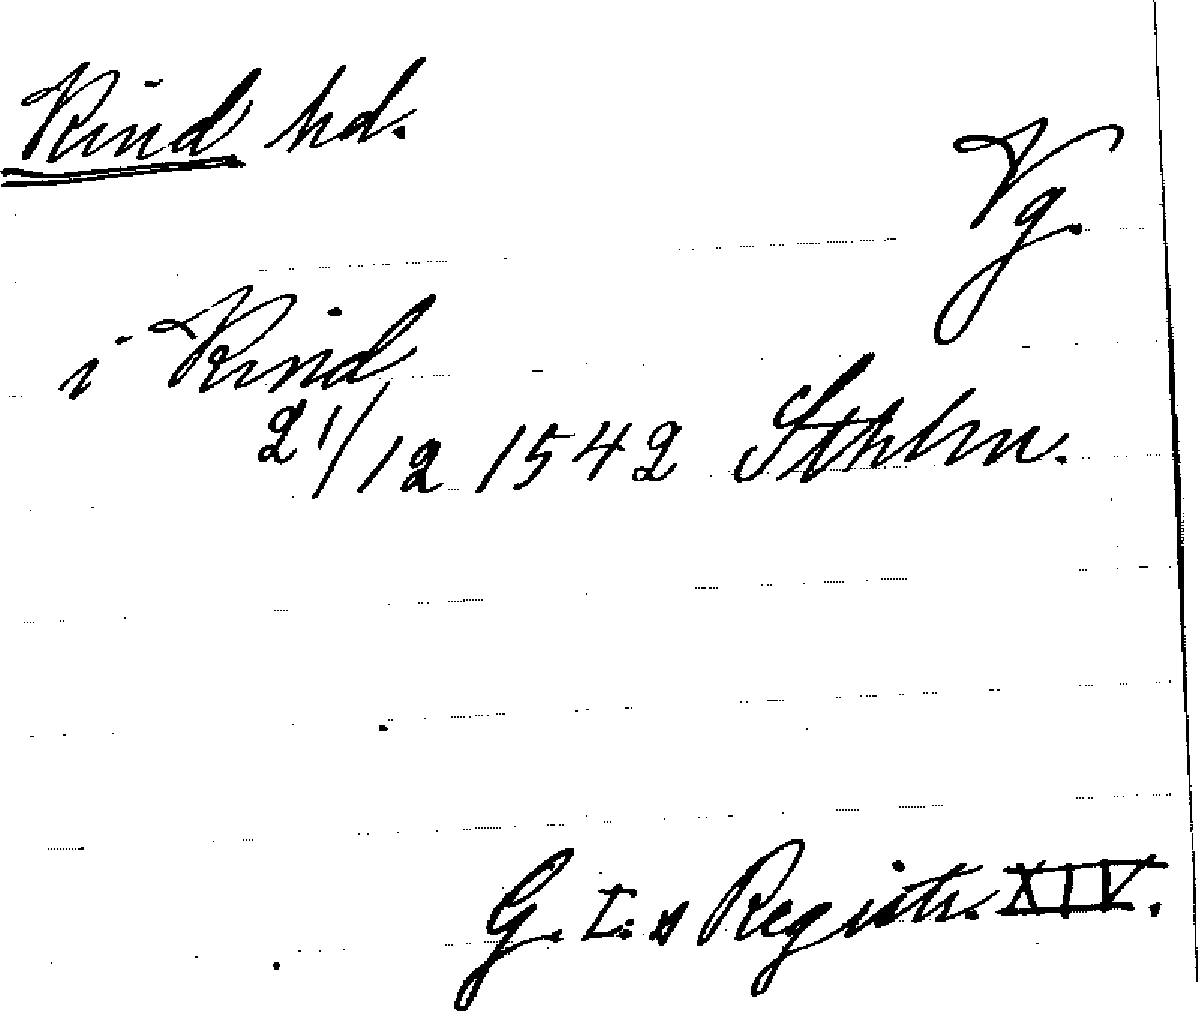 Kind hd.
Vg.
i Kind
21/12 1542 Sthlm.
G. I:s Registr. XIV.